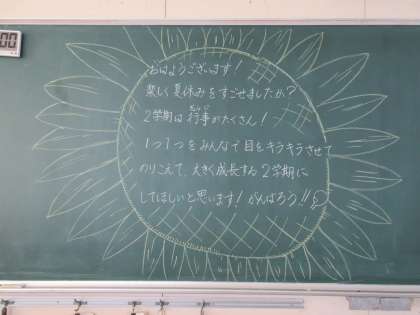 おはようございます!
楽しく夏休みをすごせましたか?
2学期は行事がたくさん!
1つ1つをみんなで目をキラキラさせて
のりこえて、大きく成長する2学期に
してほしいと思います!がんばろう!!